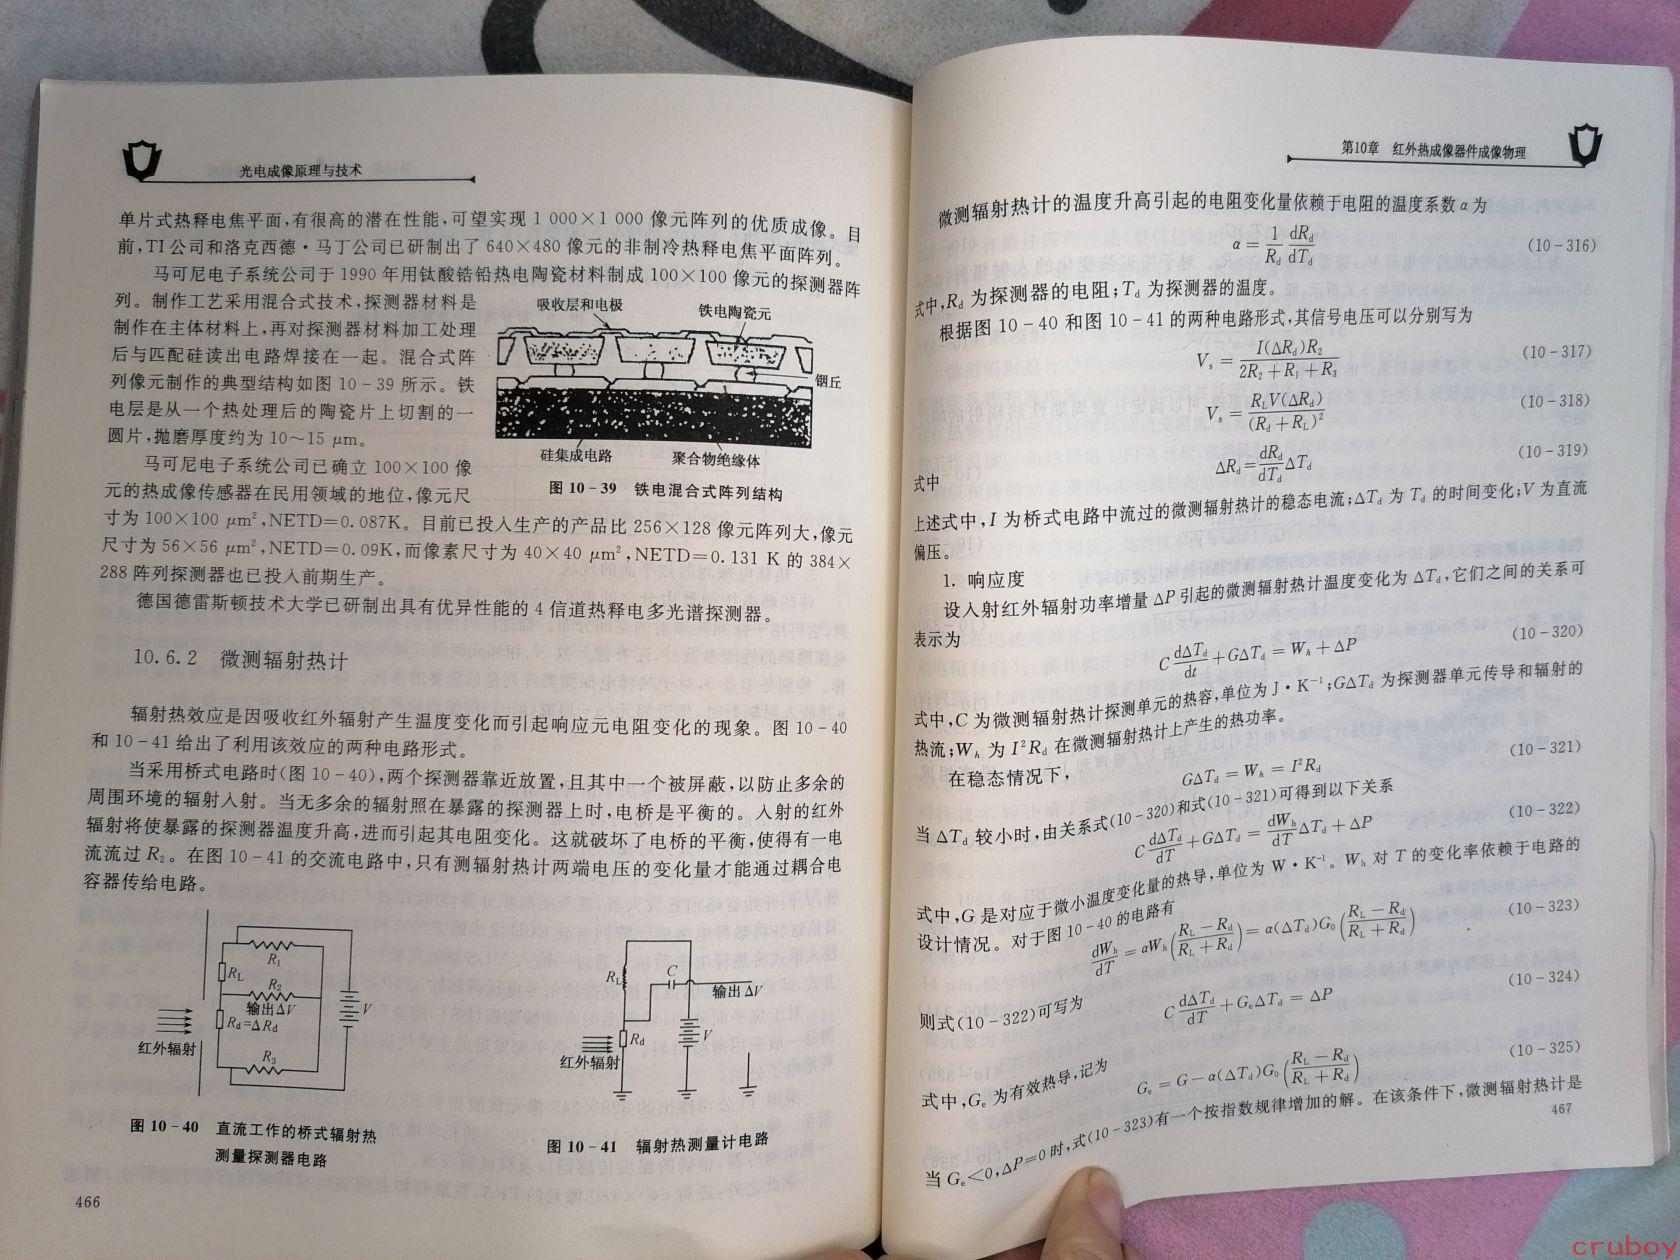 光电成像原理与技术
单片式热释电焦平面,有很高的潜在性能,可望实现 1 000×1 000 像元阵列的优质成像。目
前,TI 公司和洛克西德·马丁公司已研制出了 640×480 像元的非制冷热释电焦平面阵列。
马可尼电子系统公司于 1990 年用钛酸锆铅热电陶瓷材料制成 100×100 像元的探测器阵
列。制作工艺采用混合式技术,探测器材料是
制作在主体材料上,再对探测器材料加工处理
后与匹配硅读出电路焊接在一起。混合式阵
列像元制作的典型结构如图 10-39 所示。铁
电层是从一个热处理后的陶瓷片上切割的一
圆片,抛磨厚度约为 10～15 μm。
马可尼电子系统公司已确立 100×100 像
元的热成像传感器在民用领域的地位,像元尺
吸收层和电极
铁电陶瓷元
铟丘
硅集成电路
聚合物绝缘体
图 10-39 铁电混合式阵列结构
寸为 100×100 μm²,NETD=0.087K。目前已投入生产的产品比 256×128 像元阵列大,像元
尺寸为 56×56 μm²,NETD=0.09K,而像素尺寸为 40×40 μm²,NETD=0.131 K 的 384×
288 阵列探测器也已投入前期生产。
德国德雷斯顿技术大学已研制出具有优异性能的 4 信道热释电多光谱探测器。
10.6.2 微测辐射热计
辐射热效应是因吸收红外辐射产生温度变化而引起响应元电阻变化的现象。图 10-40
和 10-41 给出了利用该效应的两种电路形式。
当采用桥式电路时(图 10-40),两个探测器靠近放置,且其中一个被屏蔽,以防止多余的
周围环境的辐射入射。当无多余的辐射照在暴露的探测器上时,电桥是平衡的。入射的红外
辐射将使暴露的探测器温度升高,进而引起其电阻变化。这就破坏了电桥的平衡,使得有一电
流流过 R₂。在图 10-41 的交流电路中,只有测辐射热计两端电压的变化量才能通过耦合电
容器传给电路。
R₁
R_L
R₂
输出ΔV
R_d=ΔR_d
R₃
V
红外辐射
图 10-40 直流工作的桥式辐射热
测量探测器电路
R_L
C
输出ΔV
R_d
V
红外辐射
图 10-41 辐射热测量计电路
466
第10章 红外热成像器件成像物理
微测辐射热计的温度升高引起的电阻变化量依赖于电阻的温度系数 α 为
α = 1/R_d dR_d/dT_d (10-316)
式中,R_d 为探测器的电阻;T_d 为探测器的温度。
根据图 10-40 和图 10-41 的两种电路形式,其信号电压可以分别写为
V_s = I(ΔR_d)R₂/(2R₂+R₁+R₃) (10-317)
V_s = R_L V(ΔR_d)/(R_d+R_L)² (10-318)
式中 ΔR_d = dR_d/dT_d ΔT_d (10-319)
上述式中,I 为桥式电路中流过的微测辐射热计的稳态电流;ΔT_d 为 T_d 的时间变化;V 为直流
偏压。
1. 响应度
设入射红外辐射功率增量 ΔP 引起的微测辐射热计温度变化为 ΔT_d,它们之间的关系可
表示为
C dΔT_d/dt + GΔT_d = W_h + ΔP (10-320)
式中,C 为微测辐射热计探测单元的热容,单位为 J·K⁻¹;GΔT_d 为探测器单元传导和辐射的
热流;W_h 为 I²R_d 在微测辐射热计上产生的热功率。
在稳态情况下, GΔT_d = W_h = I²R_d (10-321)
当 ΔT_d 较小时,由关系式(10-320)和式(10-321)可得到以下关系
C dΔT_d/dT + GΔT_d = dW_h/dT ΔT_d + ΔP (10-322)
式中,G 是对应于微小温度变化量的热导,单位为 W·K⁻¹。W_h 对 T 的变化率依赖于电路的
设计情况。对于图 10-40 的电路有
dW_h/dT = αW_h((R_L-R_d)/(R_L+R_d)) = α(ΔT_d)G₀((R_L-R_d)/(R_L+R_d)) (10-323)
则式(10-322)可写为 C dΔT_d/dT + G_eΔT_d = ΔP (10-324)
式中,G_e 为有效热导,记为
G_e = G-α(ΔT_d)G₀((R_L-R_d)/(R_L+R_d)) (10-325)
当 G_e<0,ΔP=0 时,式(10-323)有一个按指数规律增加的解。在该条件下,微测辐射热计是
467
cruboy